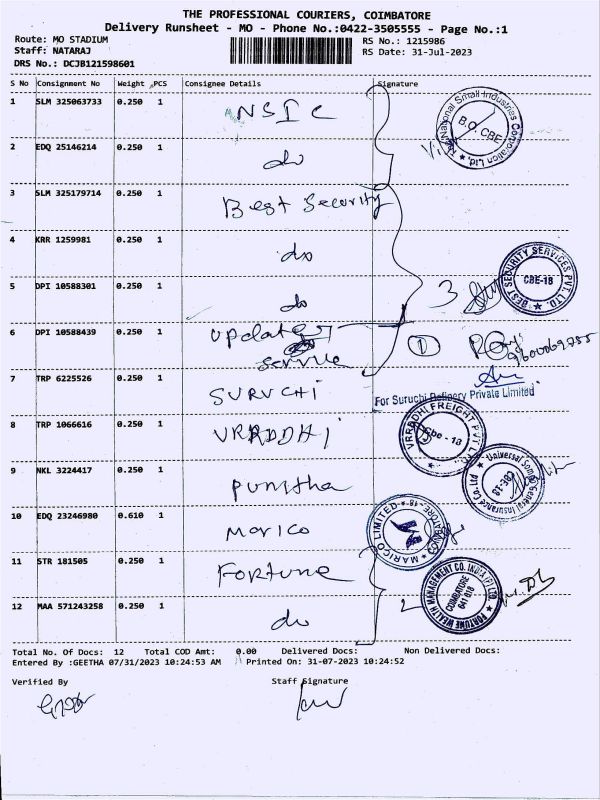 THE PROFESSIONAL COURIERS, COIMBATORE
Delivery Runsheet - MO - Phone No.:0422-3505555 - Page No.:1
Route: MO STADIUM RS No.: 1215986
Staff: NATARAJ RS Date: 31-Jul-2023
DRS No.: DCJB121598601
S No Consignment No Weight PCS Consignee Details Signature
1 SLM 325063733 0.250 1 NSIC
The National Small Industries Corporation Ltd.
B.O. CBE
2 EDQ 25146214 0.250 1 do
3 SLM 325179714 0.250 1 Best Security
4 KRR 1259981 0.250 1 do
5 DPI 10588301 0.250 1 do 3
BEST SECURITY SERVICES PVT. LTD.
CBE-18
6 DPI 10588439 0.250 1 updater service 1
7 TRP 6225526 0.250 1 SURUCHI
For Suruchi Refinery Private Limited
8 TRP 1066616 0.250 1 VRRDDHI
VRRADHI FREIGHT PVT LTD
Cbe - 18
9 NKL 3224417 0.250 1 Punitha
Universal Sompo General Insurance Co.Ltd
CBE-18
10 EDQ 23246980 0.610 1 Marico
MARICO LIMITED
COIMBATORE-18
11 STR 181505 0.250 1 Fortune
FORTUNE WEALTH MANAGEMENT CO. INDIA (P) LTD
COIMBATORE
641 018
12 MAA 571243258 0.250 1 do 2
Total No. Of Docs: 12 Total COD Amt: 0.00 Delivered Docs: Non Delivered Docs:
Entered By :GEETHA 07/31/2023 10:24:53 AM Printed On: 31-07-2023 10:24:52
Verified By Staff Signature